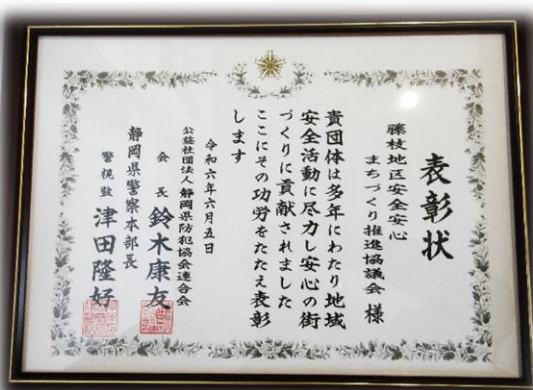 表彰状
藤枝地区安全安心
まちづくり推進協議会 様
貴団体は多年にわたり地域
安全活動に尽力し安心の街
づくりに貢献されました
ここにその功労をたたえ表彰
します
令和六年六月五日
公益社団法人静岡県防犯協会連合会
会長 鈴木康友
静岡県警察本部長
警視監 津田隆好